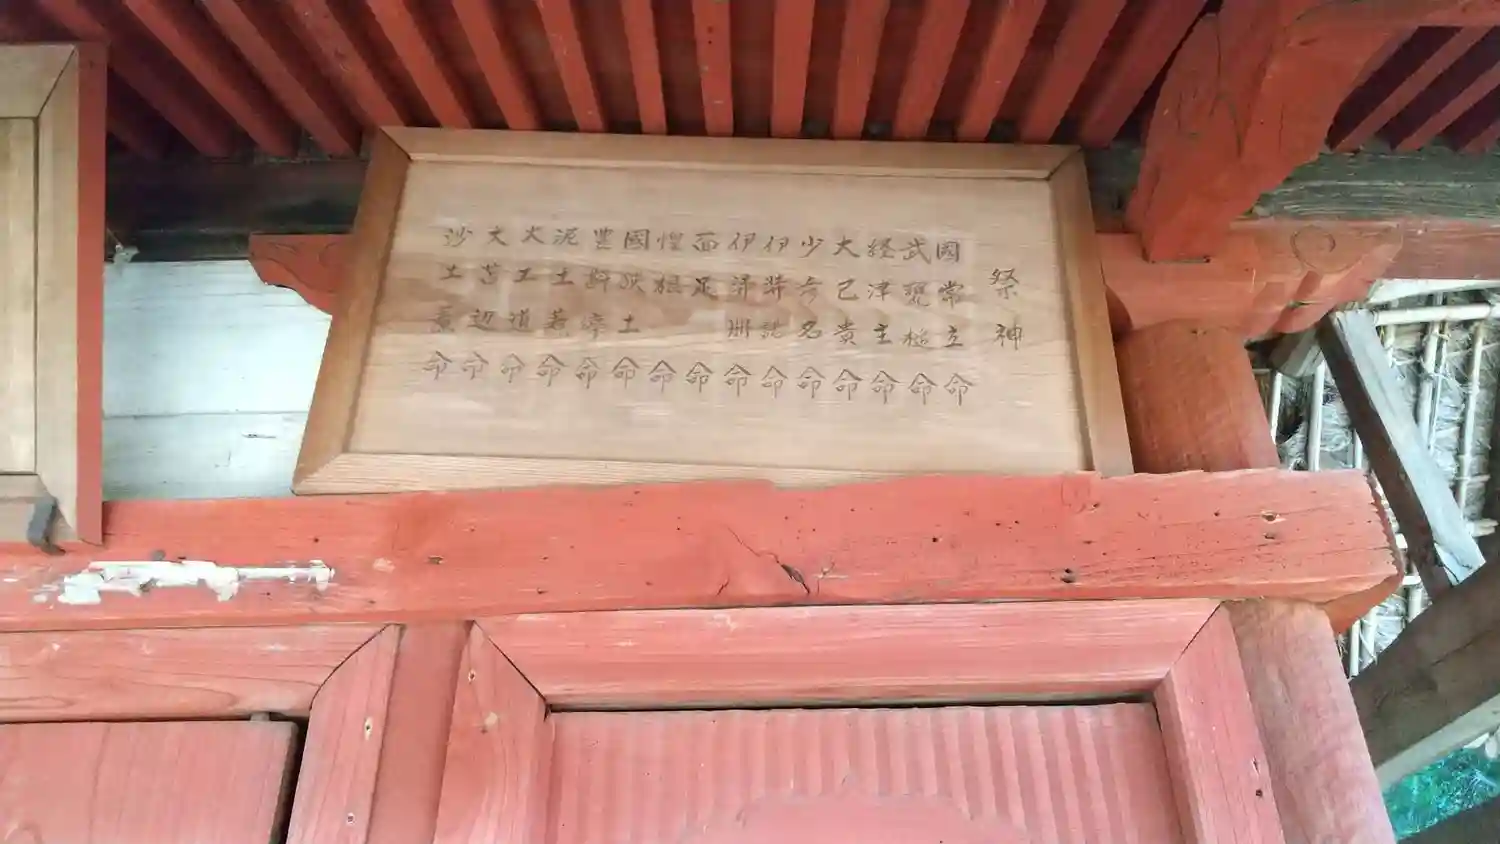 祭神
國常立命
武甕槌命
経津主命
大己貴命
少彦名命
伊弉諾命
伊弉冊命
面足命
惶根命
國狭土命
豊斟渟命
泥土煮命
大戸道命
大苫辺命
沙土煮命